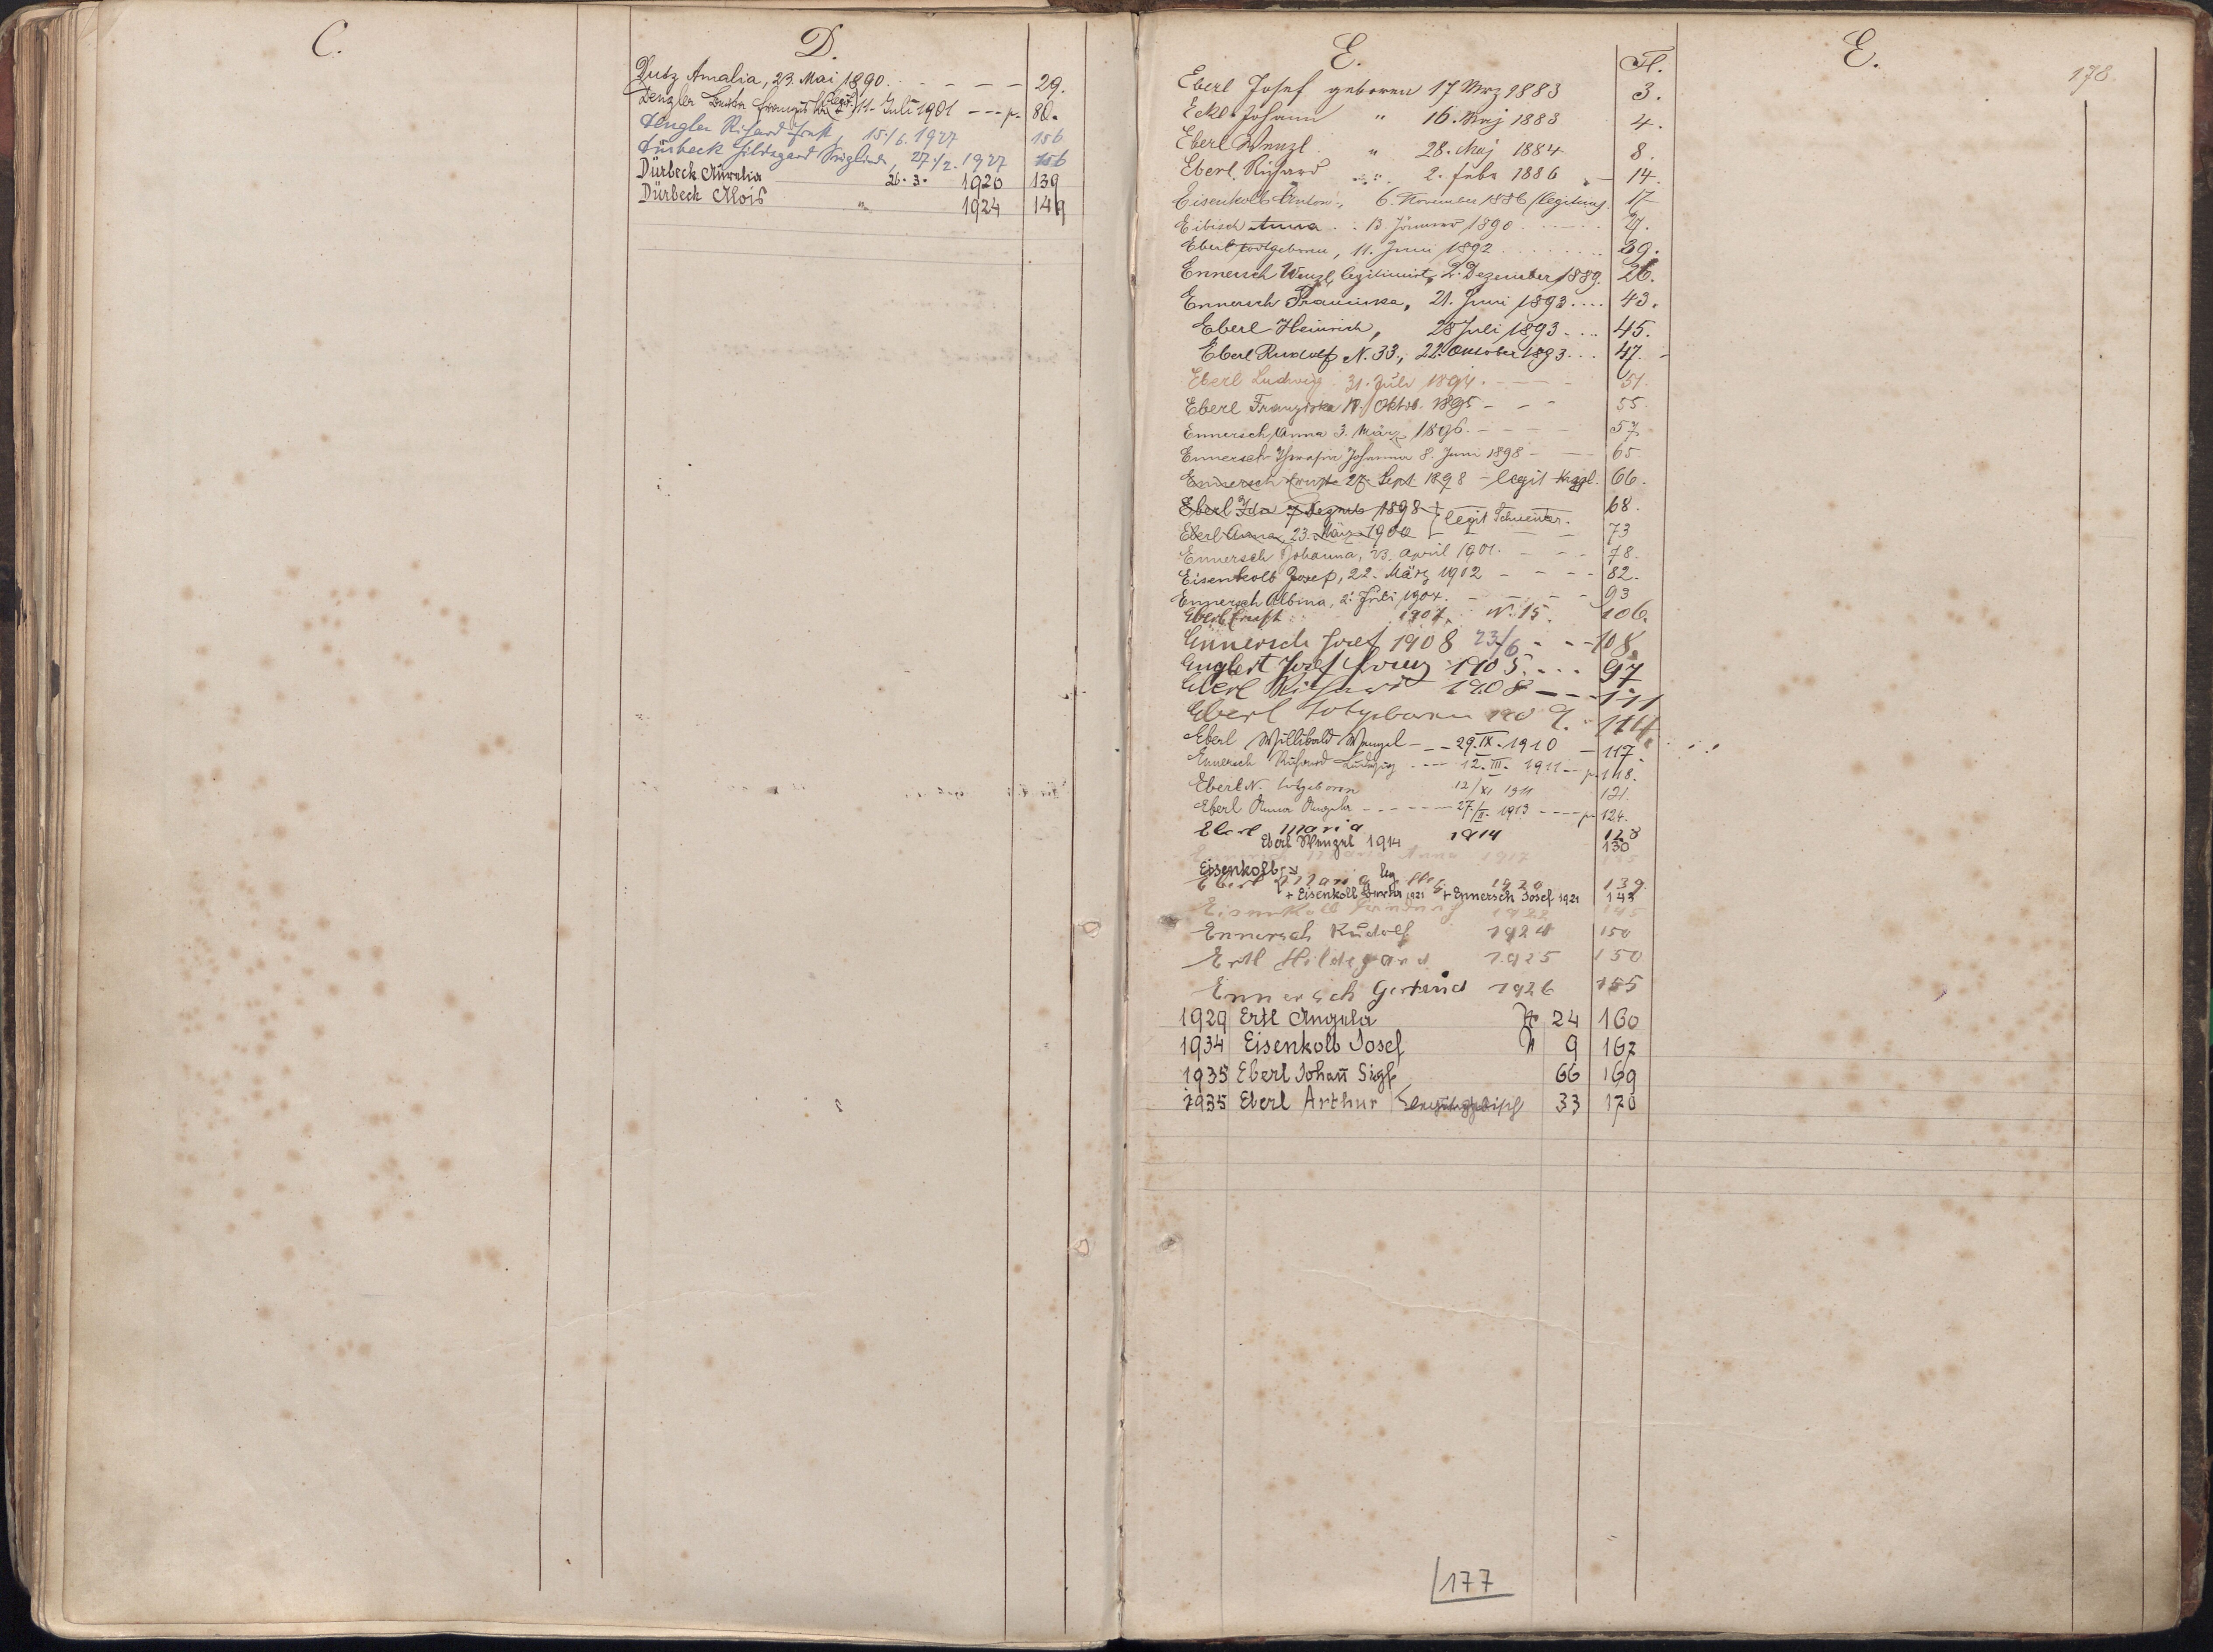 C.
D.
Dutz Amalia, 23. Mai 1890. - - - - 29.
Denzler Berta Franzis (legit.) 11. Juli 1901 - - - p. 80.
Denzler Richard Ernst, 15./6. 1927 156
Dürbeck Hildegard Sieglinde, 27./2. 1927 156
Dürbeck Aurelia 26. 3. 1920 139
Dürbeck Alois " 1924 149
E. Fl.
Eberl Josef geboren 17 Mrz 1883 3.
Eckl Johann " 16. Maj 1883 4.
Eberl Wenzl " 28. Maj 1884 8.
Eberl Richard " 2. Febr 1886 14.
Eisenkolb Anton, 6. November 1886 (legitimg. 17
Eibisch Anna . . 13. Jänner 1890 . . . . 27.
Eberl todtgeboren, 11. Juni 1892 . . . . . 39.
Ennersch Wenzl, legitimirt, 2. Dezember 1889. 26.
Ennersch Franciska, 21. Juni 1893 . . . . 43.
Eberl Heinrich, 28 Juli 1893 - . . . 45.
Eberl Rudolf N. 33., 22. Oktober 1893 . . . 47.
Eberl Ludwig 31. Juli 1894. - - - - 51.
Eberl Franziska 17. Oktob. 1895 - - - 55.
Ennersch Anna 3. März 1896. - - - - 57.
Ennersch Theresia Johanna 8. Juni 1898 - - - 65.
Ennersch Ernst 27. Sept 1898 - legit 66.
Eberl Ida 7 Dezmb 1898 } legit Schuster. 68.
Eberl Anna 23. März 1900 - - - 73
Ennersch Johanna, 23. April 1901. - - - 78.
Eisenkolb Josef, 22. März 1902 - - - - 82.
Ennersch Albina, 2. Juli 1904. - - - - 93
Eberl Ernst 1907. N. 15. 106.
Ennersch Josef 1908 23/6 - - - 108.
Englert Josef Franz 1905. . . . 97
Eberl Richard 1908 - - - 111
Eberl totgeboren 1909. - 114.
Eberl Willibald Wenzel - - - 29. IX. 1910 - 117.
Ennersch Richard Ludwig - - - 12. III. 1911 - p. 118.
Eberl N. totgeboren 12/XI 1911 121.
Eberl Anna Angela - - - - - - 27./II. 1913 - - - - p. 124.
Eberl Maria 1914 128
Eberl Wenzel 1914 130
Maria Anna 1917 135
Eisenkolb
Eberl Maria leg 1920 139.
+ Eisenkolb Bertha 1921 + Ennersch Josef 1921 143
Eisenkolb 1922 145
Ennersch Rudolf 1924 150
Ertl Hildegard 1925 150
Ennersch Gertrud 1926 155
1929 Ertl Angela N 24 160
1934 Eisenkolb Josef N 9 167
1935 Eberl Johann Sigf 66 169
1935 Eberl Arthur 33 170
177
E.
178.